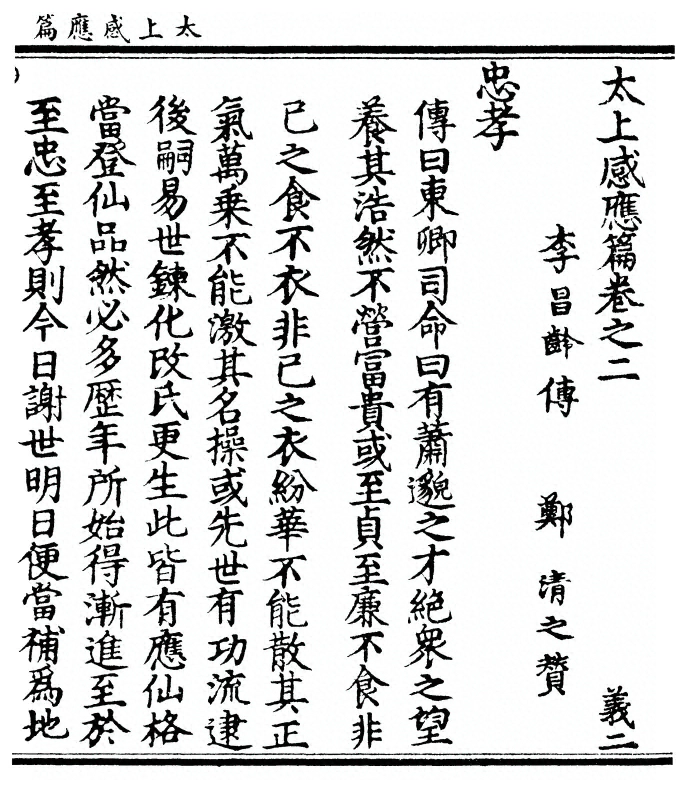 太上感應篇
太上感應篇卷之二
義二
李昌齡傳 鄭清之贊
忠孝
傳曰東卿司命曰有蕭邈之才絶衆之望
養其浩然不營富貴或至貞至廉不食非
己之食不衣非己之衣紛華不能散其正
氣萬乗不能激其名操或先世有功流逮
後嗣易世鍊化改氏更生此皆有應仙格
當登仙品然必多歷年所始得漸進至於
至忠至孝則今日謝世明日便當補爲地